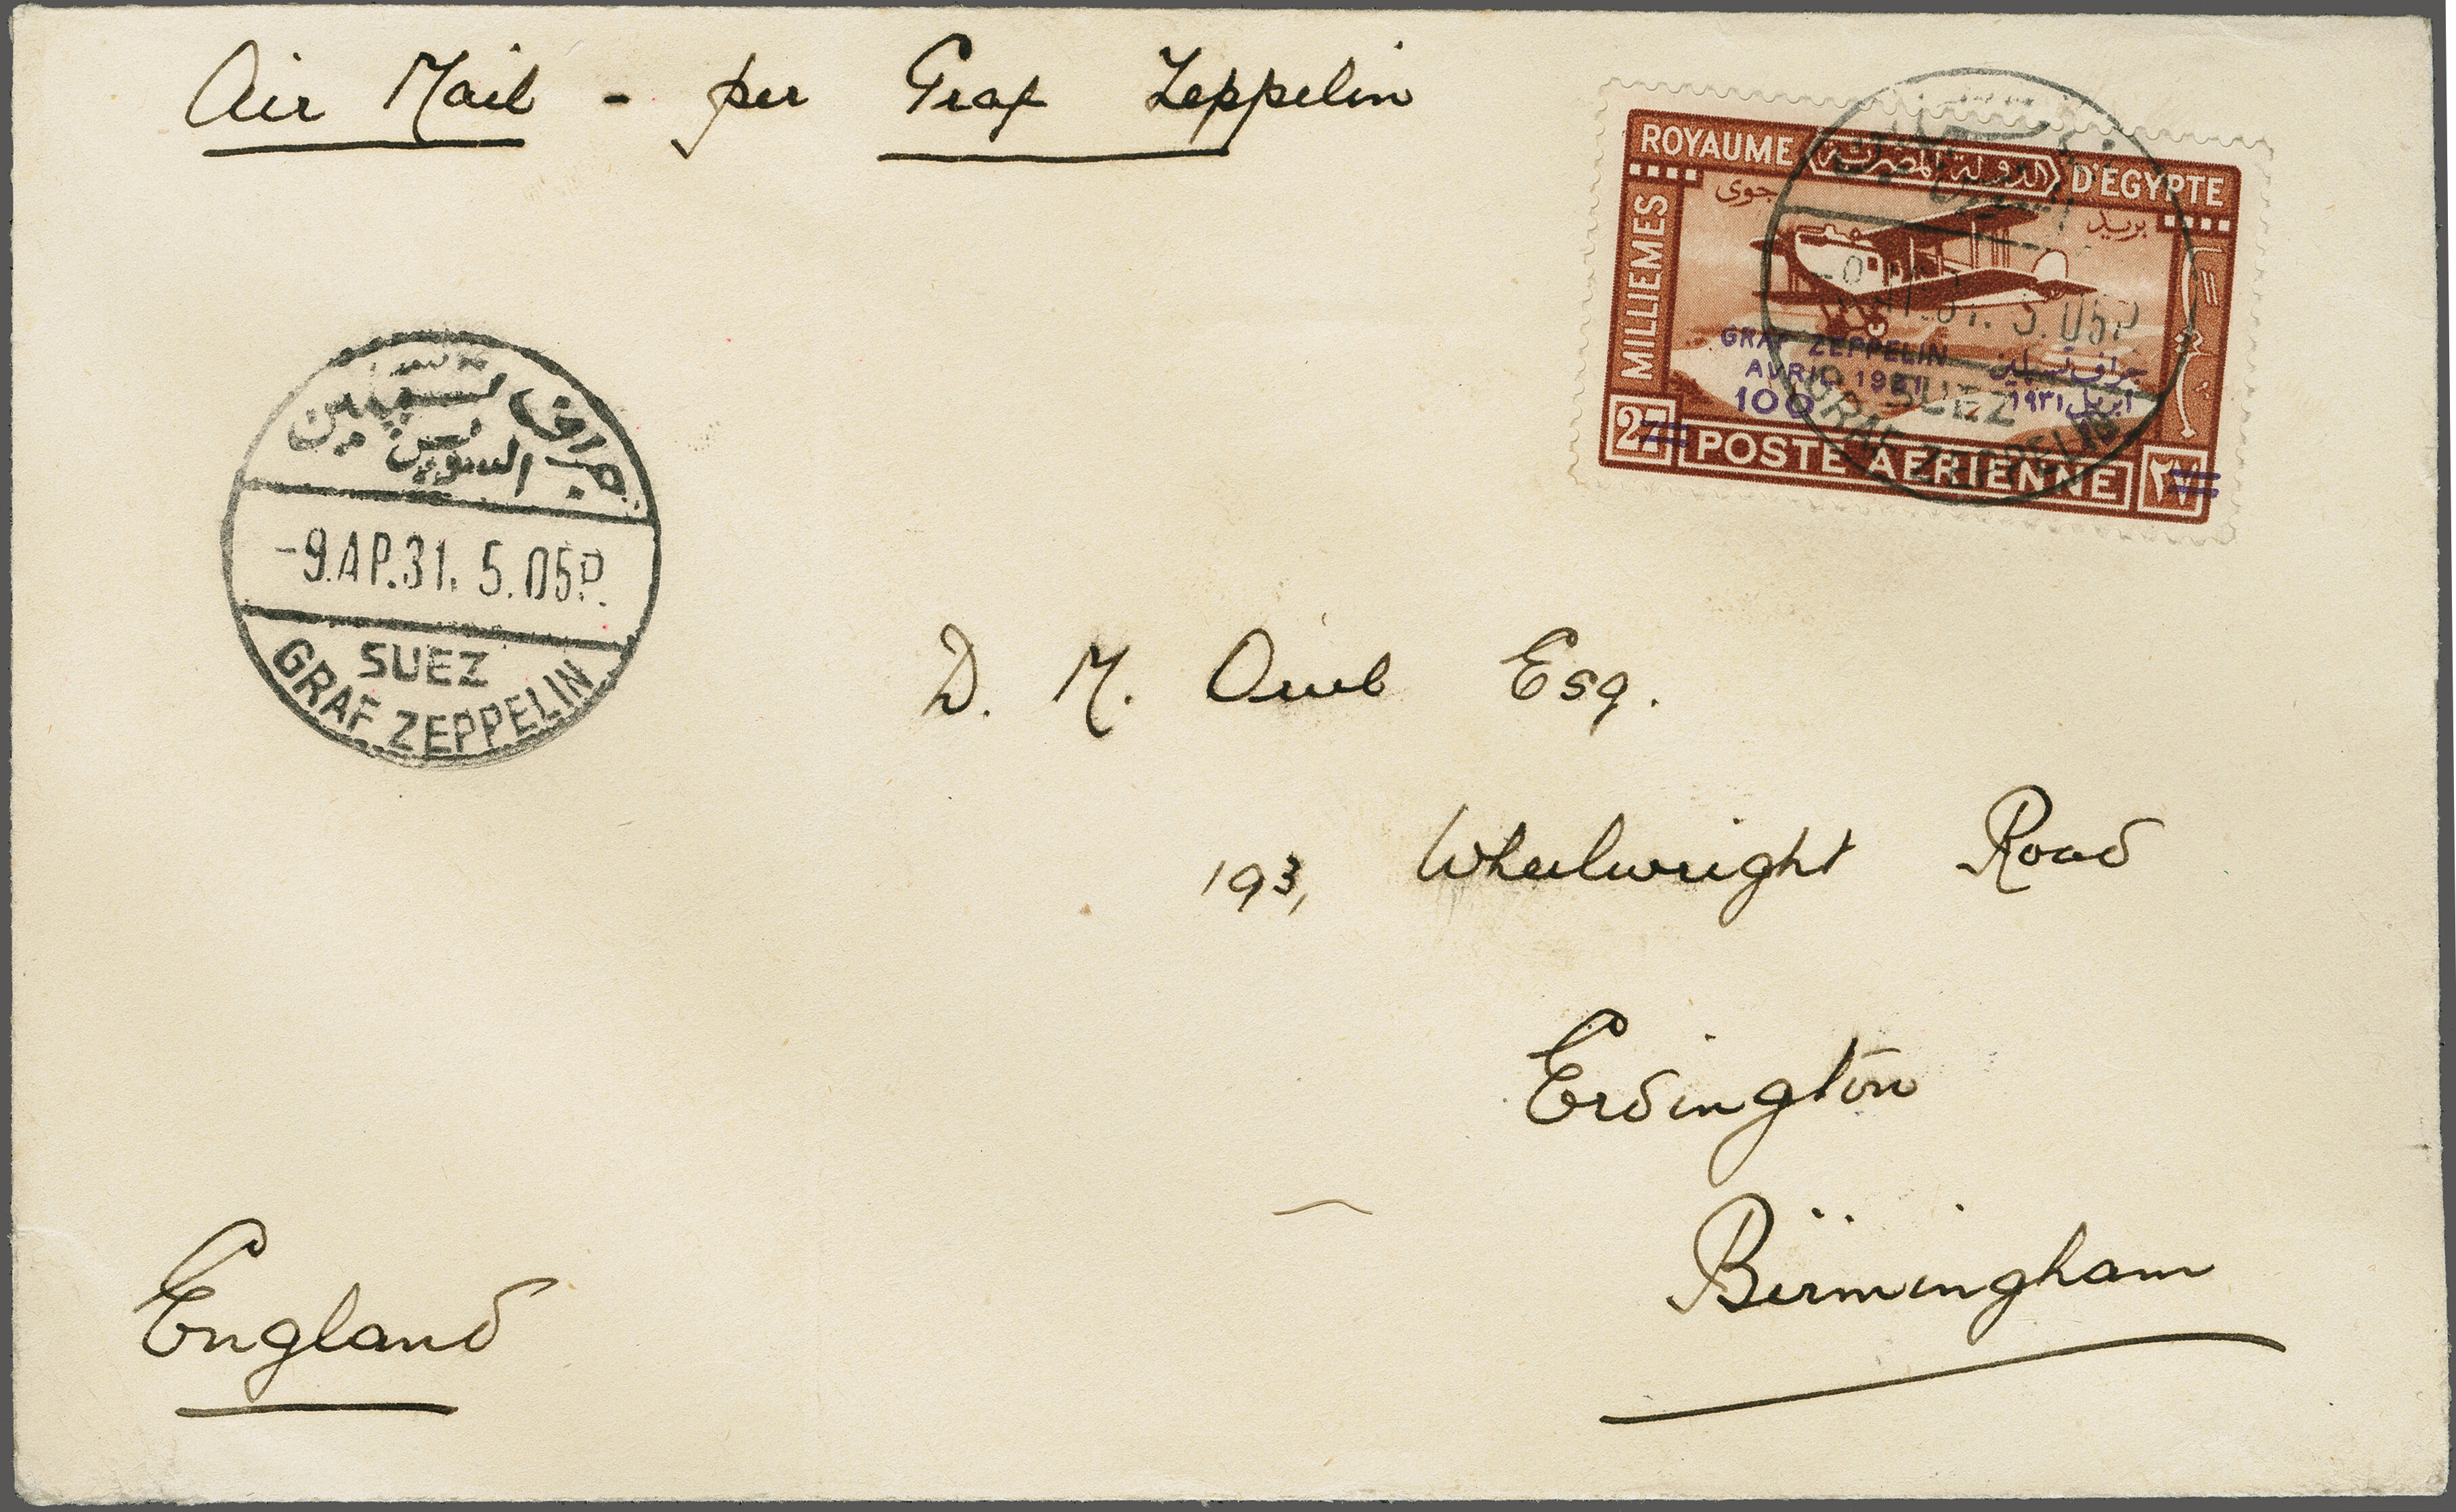 Air Mail - per Graf Zeppelin
ROYAUME الدولة المصرية D'EGYPTE
جوى بريد
MILLIEMES
GRAF ZEPPELIN جراف تسبلين
AVRIL 1931 ابريل ١٩٣١
100
27 POSTE AERIENNE ٢٧
جراف تسبلين
السويس
-9.AP.31. 5.05P.
SUEZ
GRAF ZEPPELIN
SUEZ
GRAF ZEPPELIN
D. M. Esq.
193, Wheelwright Road
Erdington
Birmingham
England